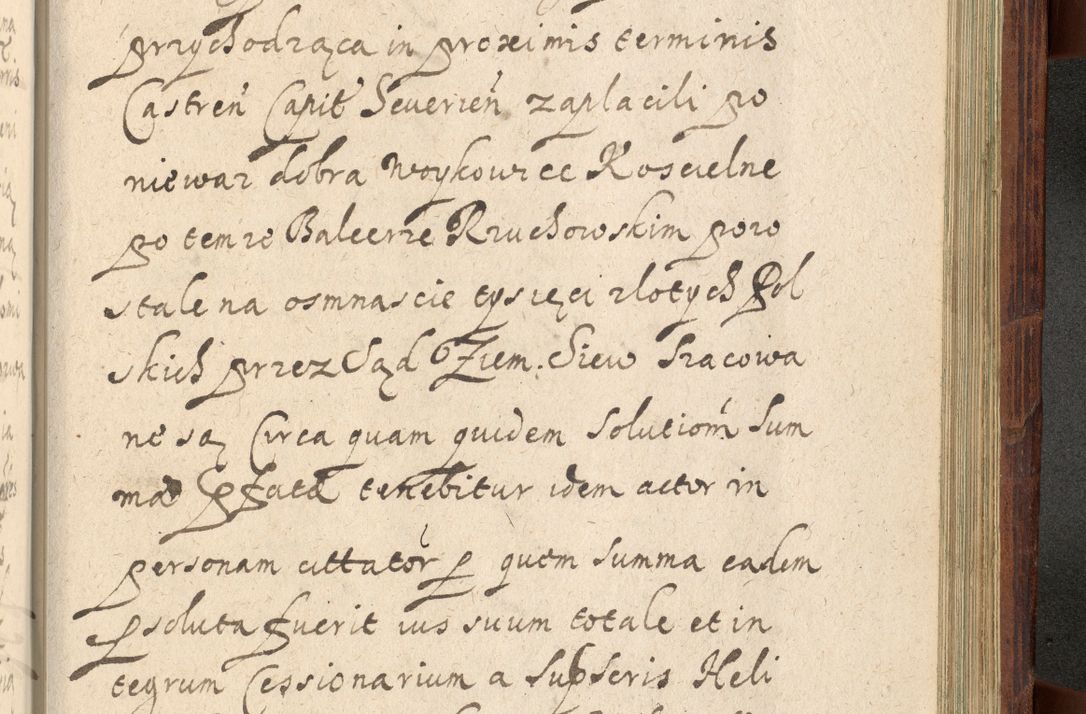 przychodząca in proximis terminis
Castreñ Capit̃ Seuerieñ zaplacili po
niewaz dobra Woykowice Koscielne
po temze Balcerze Rzuchowskim pozo
stale na osmnascie tysięci zlotych Pol
skich przez Sąd Ziem. Siew szacowa
ne są Circa quam quidem Solutiom̃ Sum
mae pfatae tenebitur idem actor in
personam cittator̃ p quem summa eadem
psoluta fuerit ius suum totale et in
tegrum Cessionarium a Subseris Heli